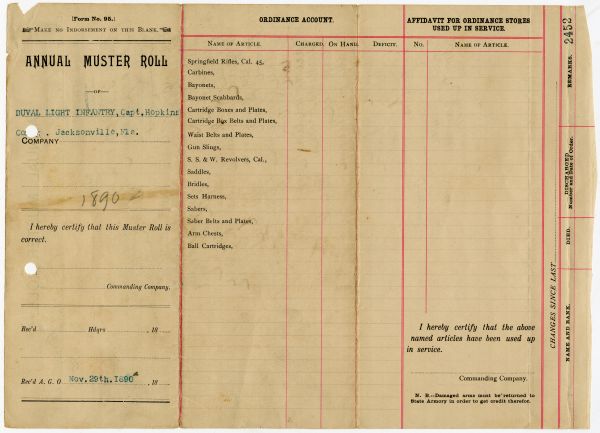 [Form No. 95.]
Make no Indorsement on this Blank.
ANNUAL MUSTER ROLL
—OF—
DUVAL LIGHT INFANTRY, Capt, Hopkins
Jacksonville, Fla.
COMPANY
1890
I hereby certify that this Muster Roll is
correct.
Commanding Company.
Rec'd Hdqrs 18
Rec'd A. G. O Nov. 29th. 1890 18
ORDINANCE ACCOUNT.
Name of Article. Charged. On Hand. Deficit.
Springfield Rifles, Cal. 45,
Carbines,
Bayonets,
Bayonet Scabbards,
Cartridge Boxes and Plates,
Cartridge Box Belts and Plates,
Waist Belts and Plates,
Gun Slings,
S. S. & W. Revolvers, Cal.,
Saddles,
Bridles,
Sets Harness,
Sabers,
Saber Belts and Plates,
Arm Chests,
Ball Cartridges,
AFFIDAVIT FOR ORDINANCE STORES
USED UP IN SERVICE.
No. Name of Article.
I hereby certify that the above
named articles have been used up
in service.
Commanding Company.
N. B.—Damaged arms must be returned to
State Armory in order to get credit therefor.
CHANGES SINCE LAST
NAME AND RANK.
DIED.
DISCHARGED
Number and Date of Order.
REMARKS.
2453